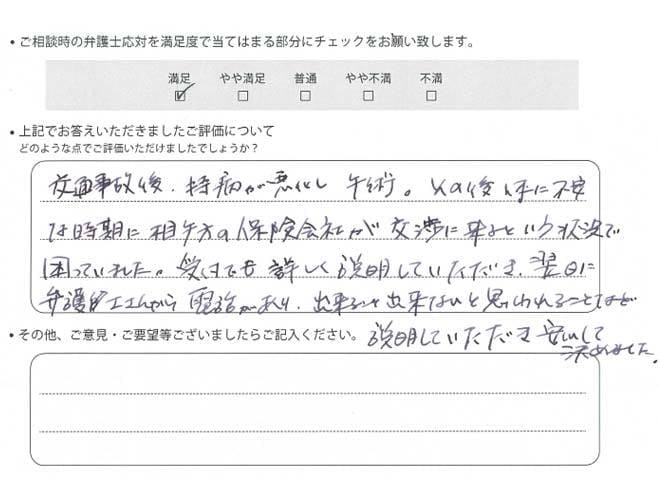 • ご相談時の弁護士応対を満足度で当てはまる部分にチェックをお願い致します。
満足 やや満足 普通 やや不満 不満
☑ ☐ ☐ ☐ ☐
• 上記でお答えいただきましたご評価について
どのような点でご評価いただけましたでしょうか？
交通事故後、持病が悪化し 手術。その後 体に不安
な時期に 相手方の保険会社が 交渉に来るという状況で
困っていました。受付でも 詳しく説明していただき、翌日に
弁護士さんから 電話があり、出来る 出来ないと思われることなど
• その他、ご意見・ご要望等ございましたらご記入ください。
説明していただき 安心して
決めました。